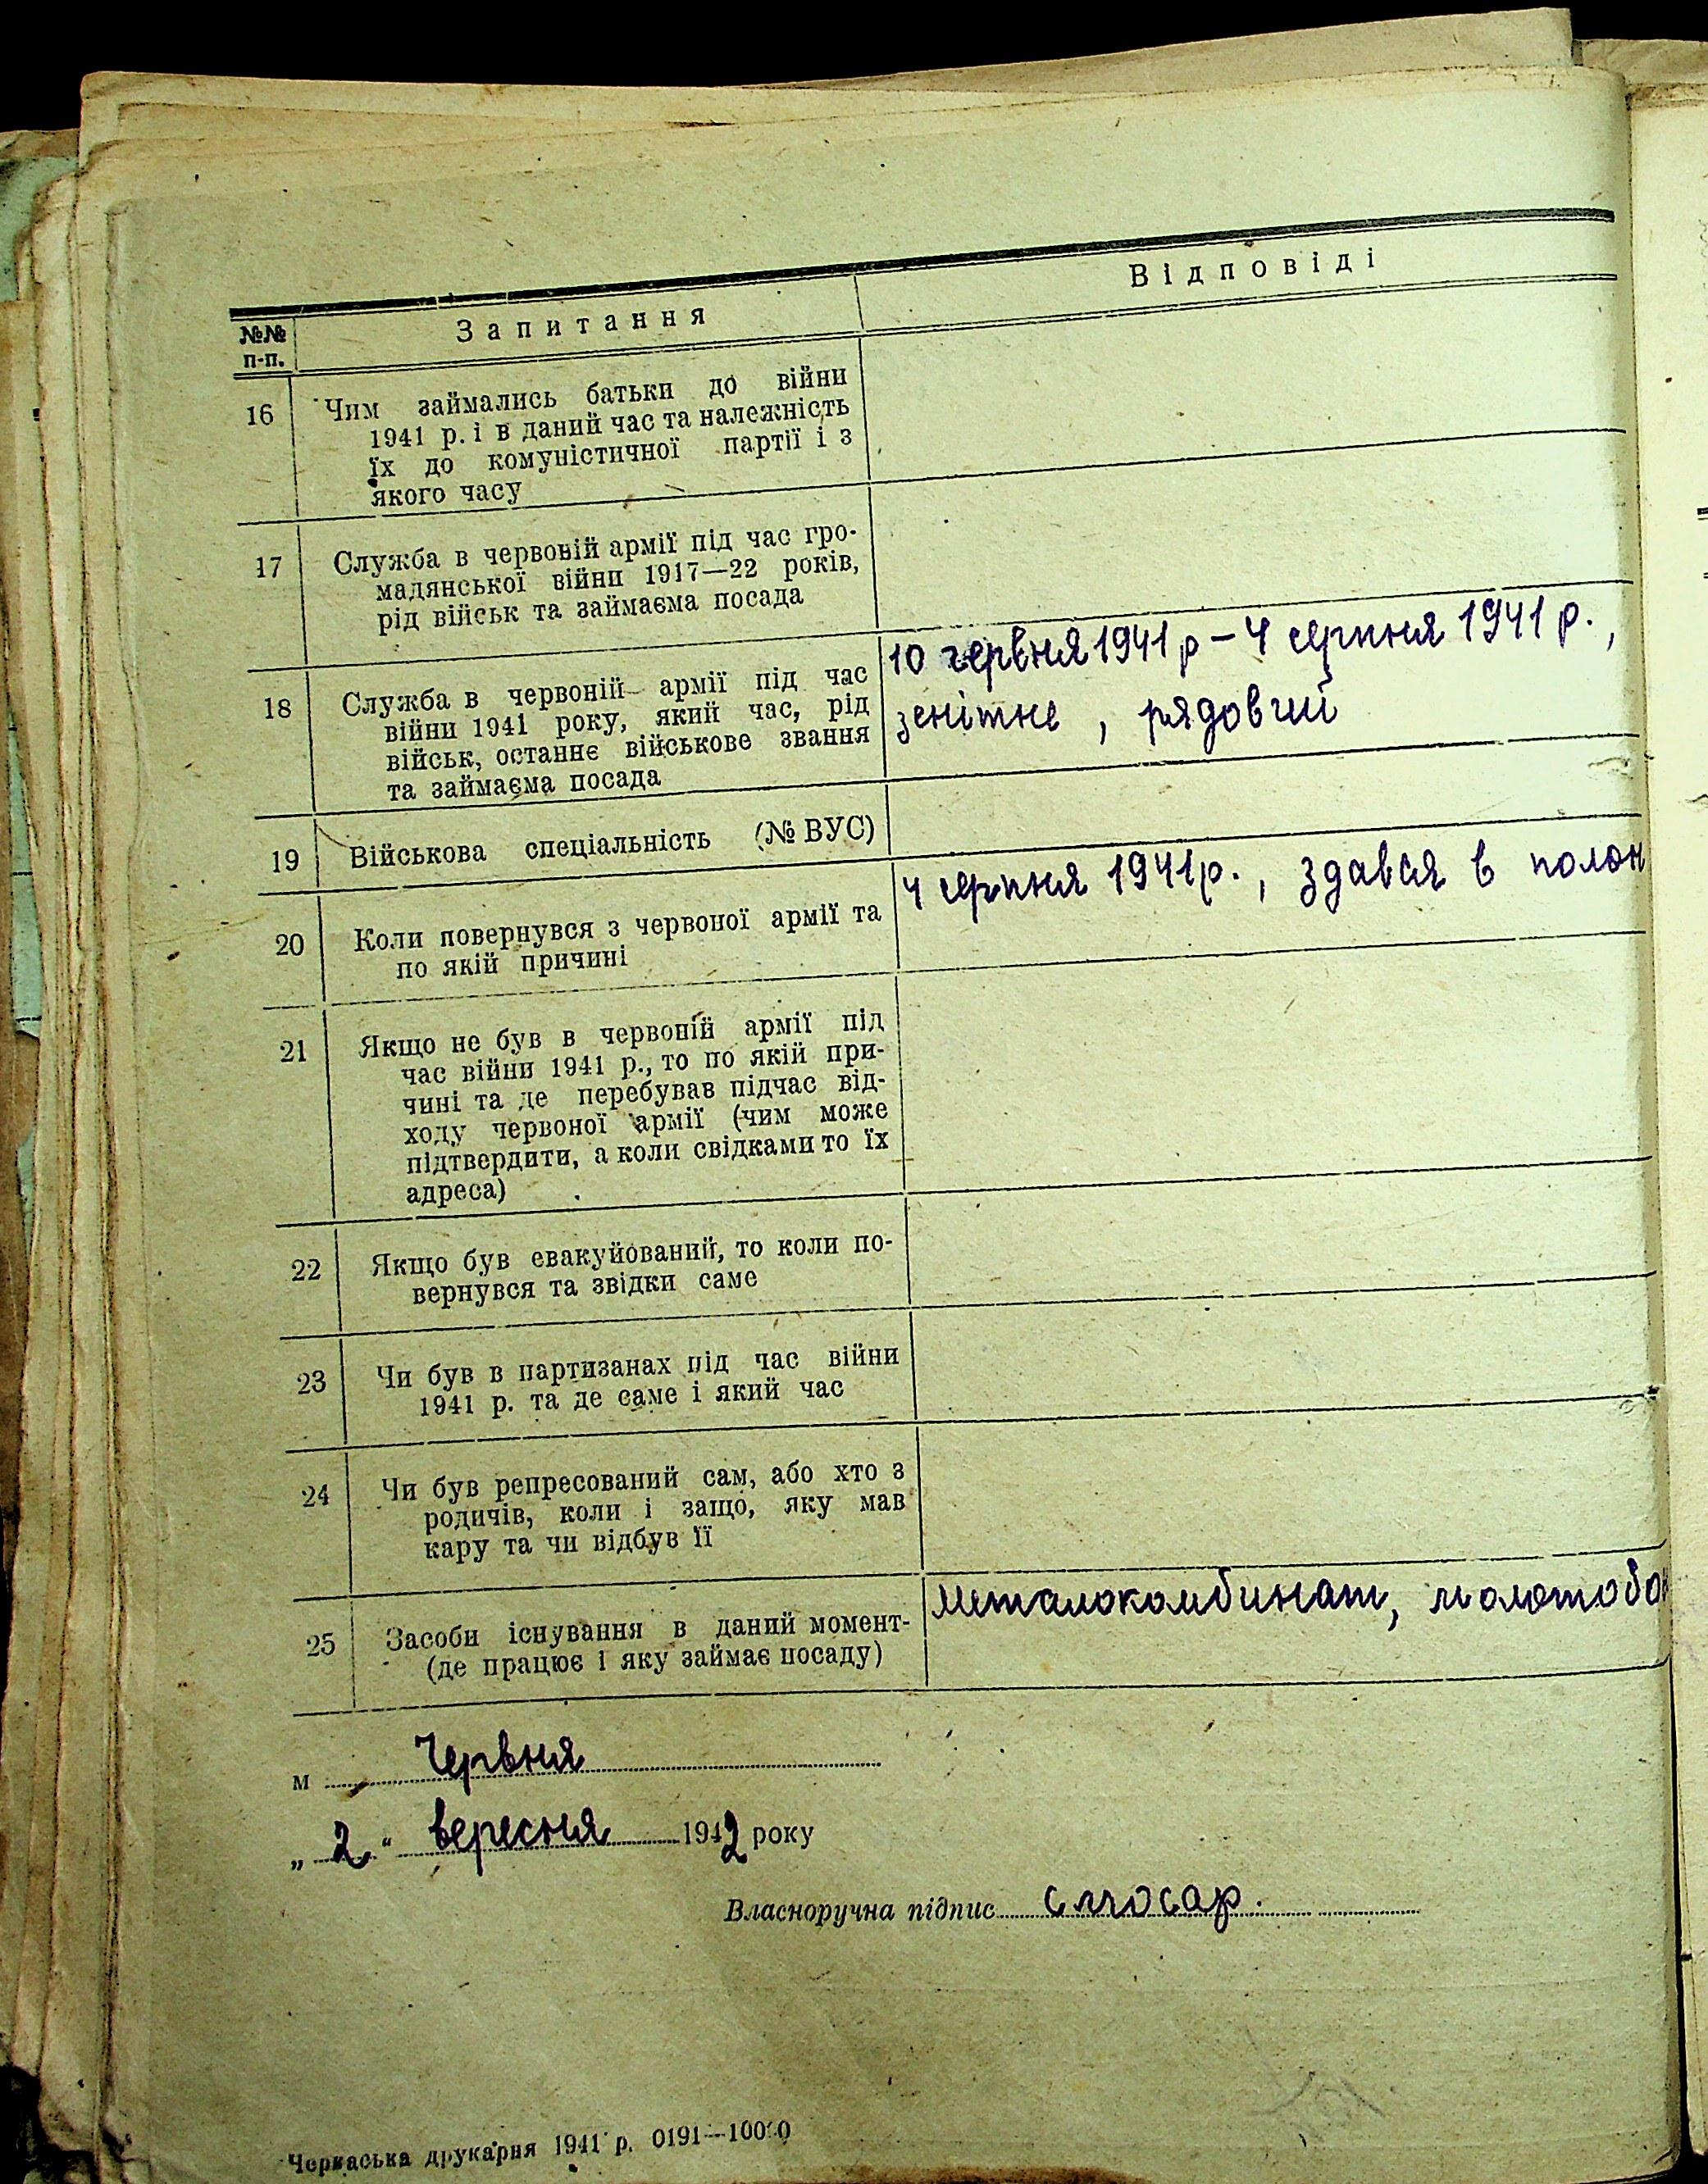 №№ п-п.
Запитання
Відповіді
16
Чим займались батьки до війни
1941 р. і в даний час та належність
їх до комуністичної партії і з
якого часу
17
Служба в червоній армії під час гро-
мадянської війни 1917—22 років,
рід військ та займаєма посада
18
Служба в червоній армії під час
війни 1941 року, який час, рід
військ, останнє військове звання
та займаєма посада
10 червня 1941 р – 4 серпня 1941 р.,
зенітне, рядовий
19
Військова спеціальність (№ ВУС)
20
Коли повернувся з червоної армії та
по якій причині
4 серпня 1941 р., здався в полон
21
Якщо не був в червоній армії під
час війни 1941 р., то по якій при-
чині та де перебував підчас від-
ходу червоної армії (чим може
підтвердити, а коли свідками то їх
адреса)
22
Якщо був евакуйований, то коли по-
вернувся та звідки саме
23
Чи був в партизанах під час війни
1941 р. та де саме і який час
24
Чи був репресований сам, або хто з
родичів, коли і защо, яку мав
кару та чи відбув її
25
Засоби існування в даний момент-
(де працює і яку займає посаду)
Металокомбинат, молотобо
м Червня
„ 2 “ вересня 1942 року
Власноручна підпис слюсар.
Черкаська друкарня 1941 р. 0191—10000